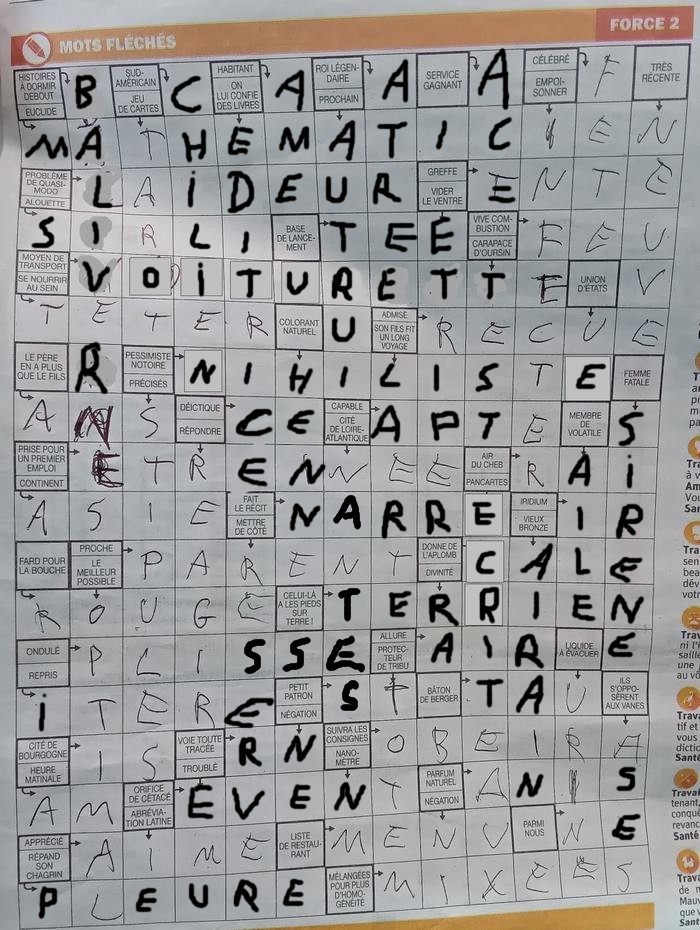 MOTS FLÉCHÉS
FORCE 2
HISTOIRES
À DORMIR
DEBOUT
EUCLIDE
B
SUD-
AMÉRICAIN
JEU
DE CARTES
C
HABITANT
ON
LUI CONFIE
DES LIVRES
A
ROI LÉGEN-
DAIRE
PROCHAIN
A
SERVICE
GAGNANT
A
CÉLÉBRÉ
EMPOI-
SONNER
F
TRÈS
RÉCENTE
M A T H E M A T I C I E N
PROBLÈME
DE QUASI-
MODO
ALOUETTE
L A I D E U R
GREFFE
VIDER
LE VENTRE
E N T E
S I R L I
BASE
DE LANCE-
MENT
T E E
VIVE COM-
BUSTION
CARAPACE
D'OURSIN
F E U
MOYEN DE
TRANSPORT
SE NOURRIR
AU SEIN
V O I T U R E T T E
UNION
D'ÉTATS
V
T E T E R
COLORANT
NATUREL
U
ADMISE
SON FILS FIT
UN LONG
VOYAGE
R E C U E
LE PÈRE
EN A PLUS
QUE LE FILS
R
PESSIMISTE
NOTOIRE
PRÉCISÉS
N I H I L I S T E
FEMME
FATALE
A N S
DÉICTIQUE
RÉPONDRE
C E
CAPABLE
CITÉ
DE LOIRE-
ATLANTIQUE
A P T E
MEMBRE
DE
VOLATILE
S
PRISE POUR
UN PREMIER
EMPLOI
CONTINENT
E T R E N N E E
AIR
DU CHEB
PANCARTES
R A I
A S I E
FAIT
LE RÉCIT
METTRE
DE CÔTÉ
N A R R E
IRIDIUM
VIEUX
BRONZE
I R
FARD POUR
LA BOUCHE
PROCHE
LE
MEILLEUR
POSSIBLE
P A R E N T
DONNE DE
L'APLOMB
DIVINITÉ
C A L E
R O U G E
CELUI-LÀ
A LES PIEDS
SUR
TERRE !
T E R R I E N
ONDULÉ
REPRIS
P L I S S E
ALLURE
PROTEC-
TEUR
DE TRIBU
A I R
LIQUIDE
À ÉVACUER
E
I T E R E
PETIT
PATRON
NÉGATION
S T
BÂTON
DE BERGER
T A U
ILS
S'OPPO-
SÈRENT
AUX VANES
CITÉ DE
BOURGOGNE
HEURE
MATINALE
I S
VOIE TOUTE
TRACÉE
TROUBLÉ
R N
SUIVRA LES
CONSIGNES
NANO-
MÈTRE
O B E I R A
A M
ORIFICE
DE CÉTACÉ
ABRÉVIA-
TION LATINE
E V E N T
PARFUM
NATUREL
NÉGATION
A N I S
APPRÉCIÉ
RÉPAND
SON
CHAGRIN
A I M E
LISTE
DE RESTAU-
RANT
M E N U
PARMI
NOUS
N E
P L E U R E
MÉLANGÉES
POUR PLUS
D'HOMO-
GÉNÉITÉ
M I X E E S